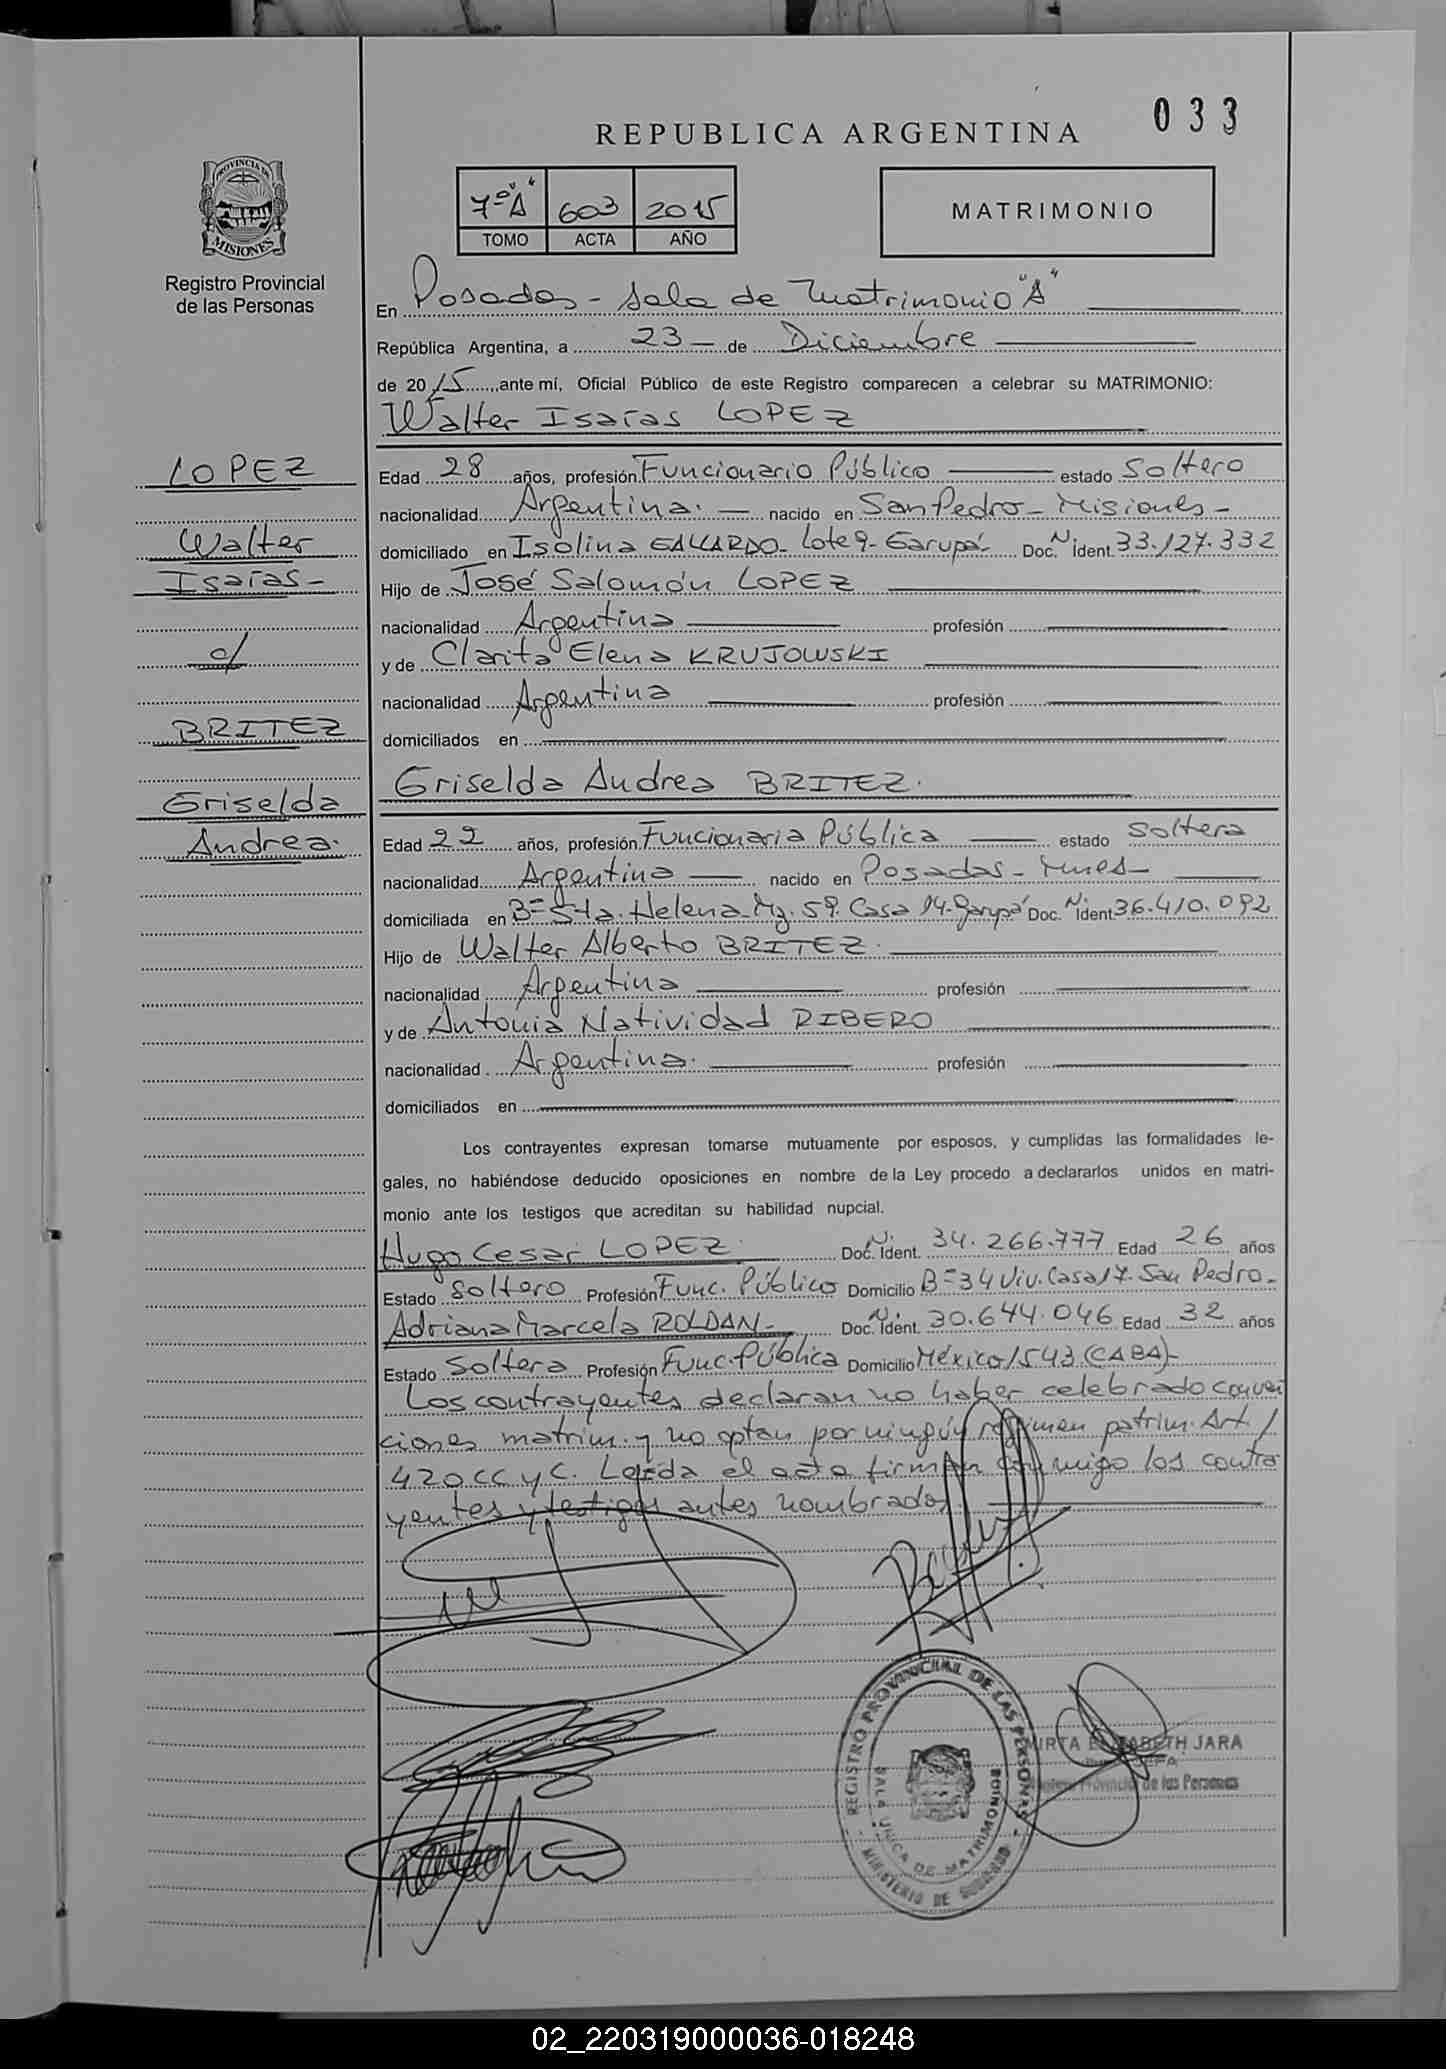 033
REPUBLICA ARGENTINA
PROVINCIA DE
MISIONES
Registro Provincial
de las Personas
7º "A" 603 2015
TOMO ACTA AÑO
MATRIMONIO
En Posadas - Sala de Matrimonio "A"
República Argentina, a 23 - de Diciembre
de 2015 ante mí, Oficial Público de este Registro comparecen a celebrar su MATRIMONIO:
Walter Isaías LOPEZ
LOPEZ
Walter
Isaías-
c/
BRITEZ
Griselda
Andrea.
Edad 28 años, profesión Funcionario Público estado Soltero
nacionalidad Argentina. - nacido en San Pedro - Misiones -
domiciliado en Isolina GALLARDO - Lote 9 - Garupá - Doc. Nº Ident. 33.127.332
Hijo de José Salomón LOPEZ
nacionalidad Argentina profesión
y de Clarita Elena KRUJOWSKI
nacionalidad Argentina profesión
domiciliados en
Griselda Andrea BRITEZ.
Edad 22 años, profesión Funcionaria Pública estado Soltera
nacionalidad Argentina nacido en Posadas - Mnes -
domiciliada en Bº Sta. Helena - Mz. 59. Casa 14 - Garupá Doc. Nº Ident 36.410.092
Hijo de Walter Alberto BRITEZ.
nacionalidad Argentina profesión
y de Antonia Natividad RIBERO
nacionalidad Argentina. profesión
domiciliados en
Los contrayentes expresan tomarse mutuamente por esposos, y cumplidas las formalidades le-
gales, no habiéndose deducido oposiciones en nombre de la Ley procedo a declararlos unidos en matri-
monio ante los testigos que acreditan su habilidad nupcial.
Hugo Cesar LOPEZ. Doc. Nº Ident. 34.266.777 Edad 26 años
Estado Soltero Profesión Func. Público Domicilio Bº 34 Viv. Casa 17. San Pedro -
Adriana Marcela ROLDAN - Doc. Nº Ident. 30.644.046 Edad 32 años
Estado Soltera Profesión Func. Pública Domicilio México 1543 (CABA) -
Los contrayentes declaran no haber celebrado conven
ciones matrim. y no optan por ningún régimen patrim. Art. /
420 CC y C. Leída el acta firman conmigo los contra
yentes y testigos antes nombrados.
REGISTRO PROVINCIAL DE LAS PERSONAS
SALA UNICA DE MATRIMONIOS
MINISTERIO DE GOBIERNO
MIRTA ELIZABETH JARA
JEFA
Registro Provincial de las Personas
02_220319000036-018248